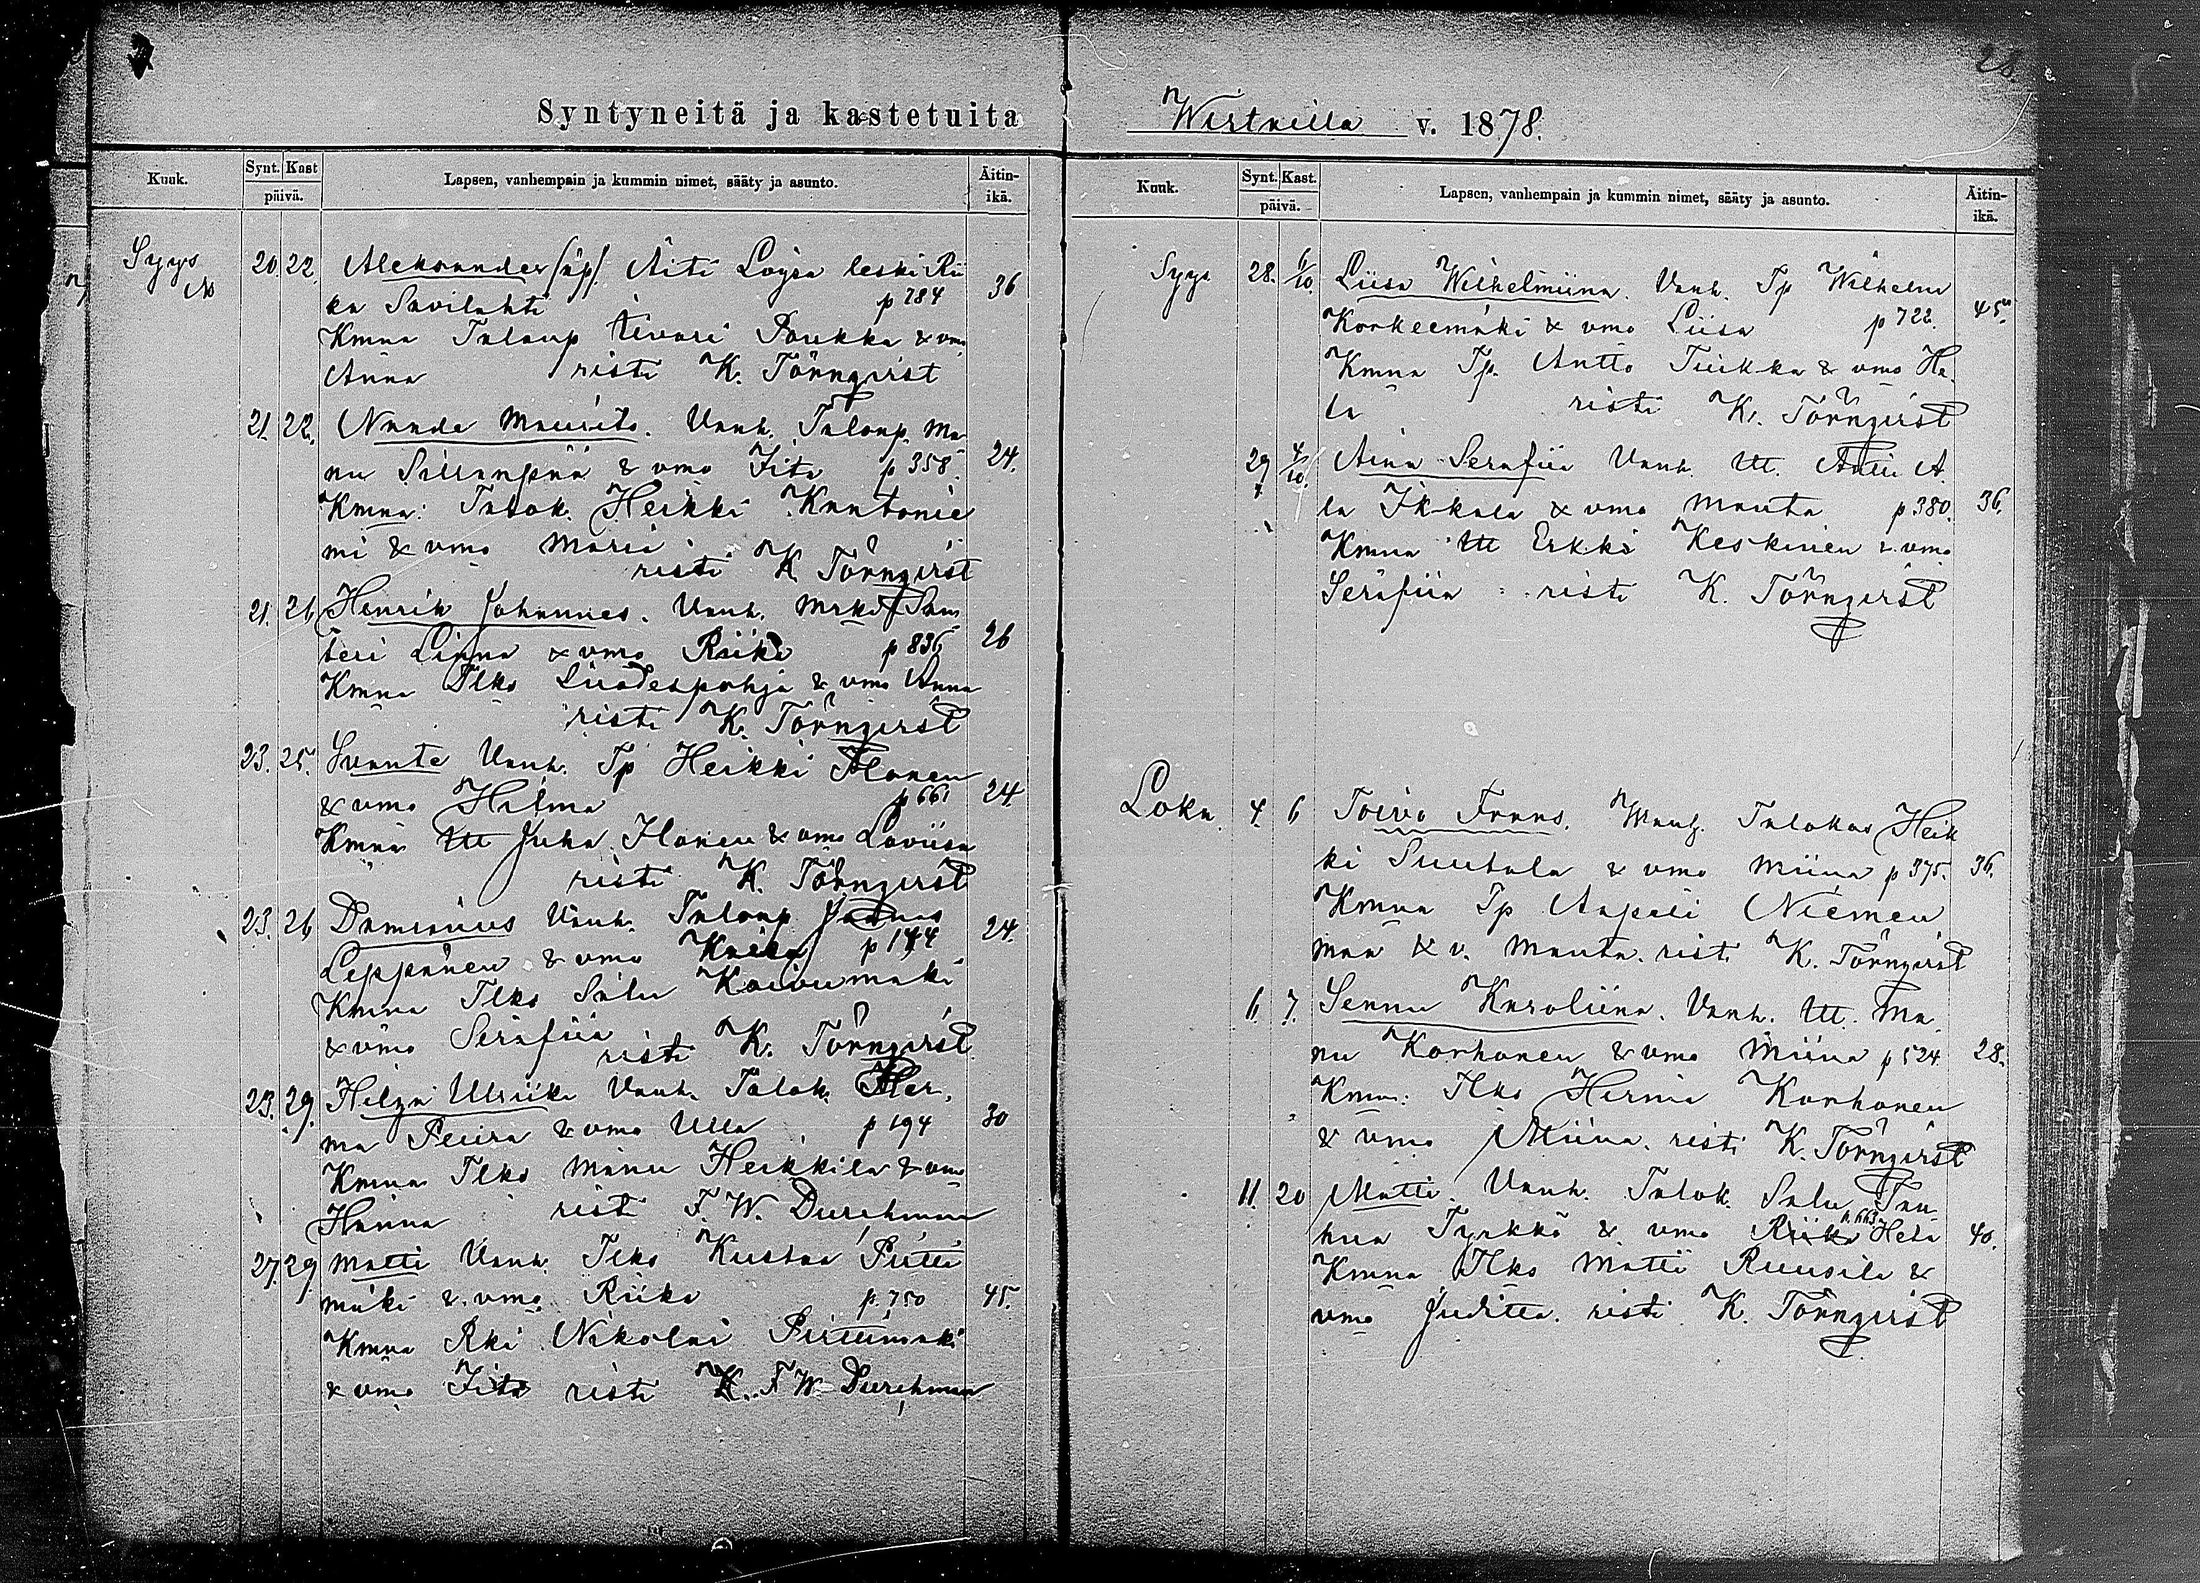 28.
Syntyneitä ja kastetuita
Wirtailla v. 1878.
Kuuk. Synt. Kast päivä. Lapsen, vanhempain ja kummin nimet, sääty ja asunto. Äitin-ikä.
Syys 20. 22. Aleksander (äp). Äiti Loysa leski Rii 36
ka Savilahti p 784
Kmna Taloup Iivari Poukka & vmo
Anna risti K. Törnqvist
21. 22. Nanda Maurits. Vanh. Taloup. Ma
nu Siuranpää & vmo Fita p 358. 24.
Kmna: Talok. Heikki Kantonie
mi & vmo Maria
risti K. Törnqvist
21. 26 Henrik Johannes. Vanh. Mrko Sam
teri Linna & vmo Riika p 836 26
Kmna Ilko Liedespohja & vmo Anna
risti K. Törnqvist
23. 25. Svante Vanh. Tp Heikki Ilonen
& vmo Hilma p 661 24
Kmna Itl Juha Ilonen & vmo Loviisa
risti K. Törnqvist
23. 26 Damianus Vanh. Taloup Joonas
Leppänen & vmo Kaisa p 144 24.
Kmna Ilko Salu Koivumäki
& vmo Serafiia
risti K. Törnqvist
23. 29. Helga Ulriika Vanh. Talok. Her.
ma Peura & vmo Ulla p 194 30
Kmna Ilko Manu Heikkilä & vmo
Hanna risti F. W. Durchman
27. 29 Matti Vanh. Ilko Kustaa Pirtti
mäki & vmo Riika p. 750 45.
Kmna Rki Nikolai Pirttimäki
& vmo Fita risti F W Durchman
Kuuk. Synt. Kast. päivä. Lapsen, vanhempain ja kummin nimet, sääty ja asunto. Äitin-ikä.
Syys 28. 6/10. Liisa Wilhelmiina. Vanh. Tp Wilhelm
Korkeemäki & vmo Liisa p 722. 45.
Kmna Tp. Antto Tuikka & vmo He.
la risti K. Törnqvist
29 4/10. Aina Serafiia Vanh. Itl. Antti A.
la Ikkala & vmo Manta p 380. 36.
Kmna Itl Erkki Keskinen & vmo
Serafiia risti K. Törnqvist
Loka 4. 6 Toivo Frans. Vanh. Talokas Heik
ki Suutala & vmo Miina p 375. 36.
Kmna Tp Aapeli Niemen
maa & v. Manta. risti K. Törnqvist
6. 7. Sanna Karoliina. Vanh. Itl. Ma.
nu Korhonen & vmo Miina p 524 28.
Kmn: Ilko Herma Korhonen
& vmo Miina. risti K. Törnqvist
11. 20 Matti. Vanh. Talok. Salu Tau
hua Tyrkkö & vmo Riika Heta p. 663 40.
Kmna Ilko Matti Ruusila &
vmo Juditta. risti K. Törnqvist